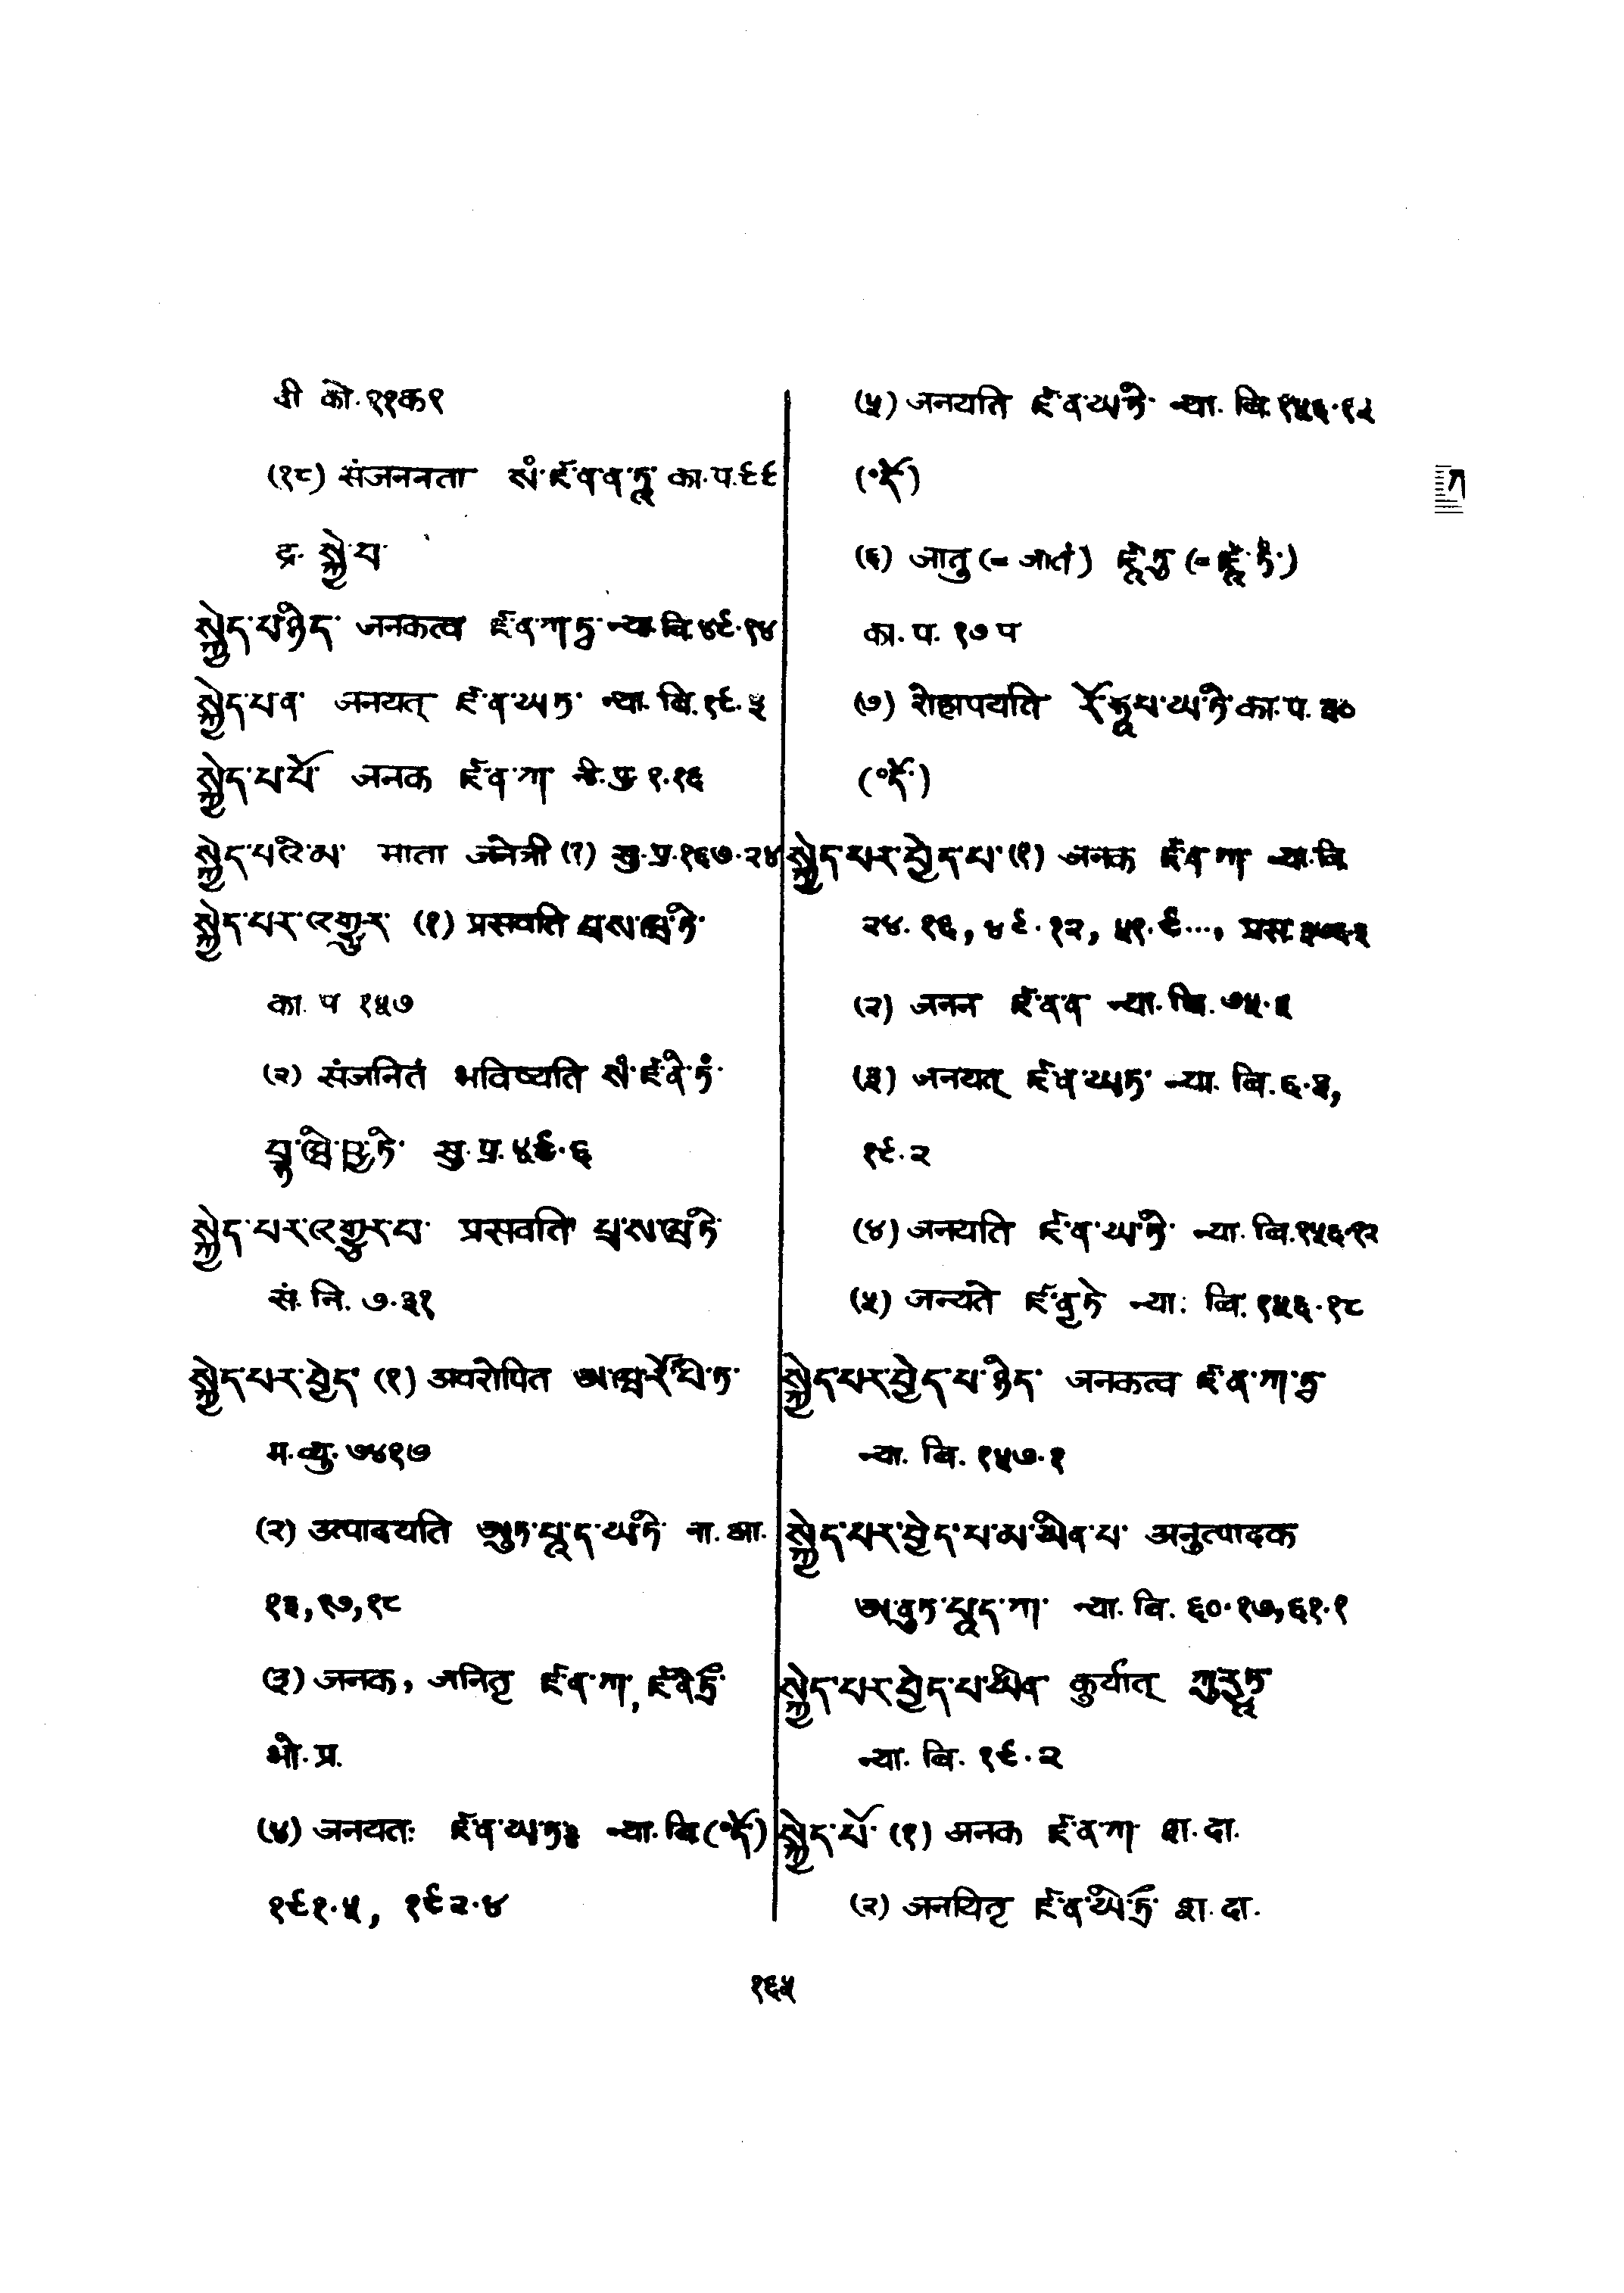 को. २११क१
(१८) संजननता སཾ་ཛ་ན་ན་ཏཱ་ का. प. ९९
द्र. སྐྱེ་བ་
སྐྱེད་པ་ཉིད་ जनकत्व ཛ་ན་ཀ་ཏྭ་ न्या. बि. ४९.१४
སྐྱེད་པ་ན་ जनयत् ཛ་ན་ཡ་ཏ་ न्या. बि. १९.३
སྐྱེད་པ་པོ་ जनक ཛ་ན་ཀ १.१६
སྐྱེད་པའི་མ་ माता जनेत्री (?) सु. प्र. १६७.२४
སྐྱེད་པར་འགྱུར་ (१) प्रसवति པྲ་ས་ཝ་ཏི་
का. प १५७
(२) संजनितं भविष्यति སཾ་ཛ་ནི་ཏཾ་
བྷ་ཝི་ཥྱ་ཏི་ सु. प्र. ४९.६
སྐྱེད་པར་འགྱུར་བ་ प्रसवति པྲ་ས་ཝ་ཏི
सं. नि. ७.३१
སྐྱེད་པར་བྱེད་ (१) अवरोपित ཨ་ཝ་རོ་པི་ཏ་
म. व्यु. ७४१७
(२) उत्पादयति ཨུཏ་པཱ་ད་ཡ་ཏི ना. आ.
१३, १७, १८
(३) जनक, जनितृ ཛ་ན་ཀ་, ཛ་ནི་ཏྲྀ
भो. प्र.
(४) जनयतः ཛ་ན་ཡ་ཏཿ न्या. बि (॰དོ)
१९१.५, १९२.४
(५) जनयति ཛ་ན་ཡ་ཏི་ न्या. बि. १५६.१२
(॰དོ)
(६) जातु (= जातं) ཛཱ་ཏུ (= ཛཱ་ཏཾ་)
का. प. १७ प
(७) रोहापयति རོ་ཧཱ་པ་ཡ་ཏི་ का. प. ३०
(॰དོ་)
སྐྱེད་པར་བྱེད་པ་ (१) जनक ཛ་ན་ཀ न्या. बि
२४.१६, ४९.१२, ५१.९..., प्रस.
(२) जनन ཛ་ན་ན न्या. बि. ७५.३
(३) जनयत् ཛ་ན་ཡ་ཏ་ न्या. बि. ६.३,
१९.२
(४) जनयति ཛ་ན་ཡ་ཏི་ न्या. बि. १५६.१२
(५) जन्यते ཛ་ནྱ་ཏེ न्या. बि. १५६.१८
སྐྱེད་པར་བྱེད་པ་ཉིད་ जनकत्व ཛ་ན་ཀ་ཏྭ
न्या. बि. १५७.१
སྐྱེད་པར་བྱེད་པ་མ་ཡིན་པ་ अनुत्पादक
ཨ་ནུཏ་པཱ་ད་ཀ་ न्या. बि. ६०.१७, ६१.१
སྐྱེད་པར་བྱེད་པ་ཡིན कुर्यात् ཀུ་རྱཱཏ
न्या. बि. १९.२
སྐྱེད་པོ་ (१) जनक ཛ་ན་ཀ། श. दा.
(२) जनयितृ ཛ་ན་ཡི་ཏྲྀ श. दा.
१६५